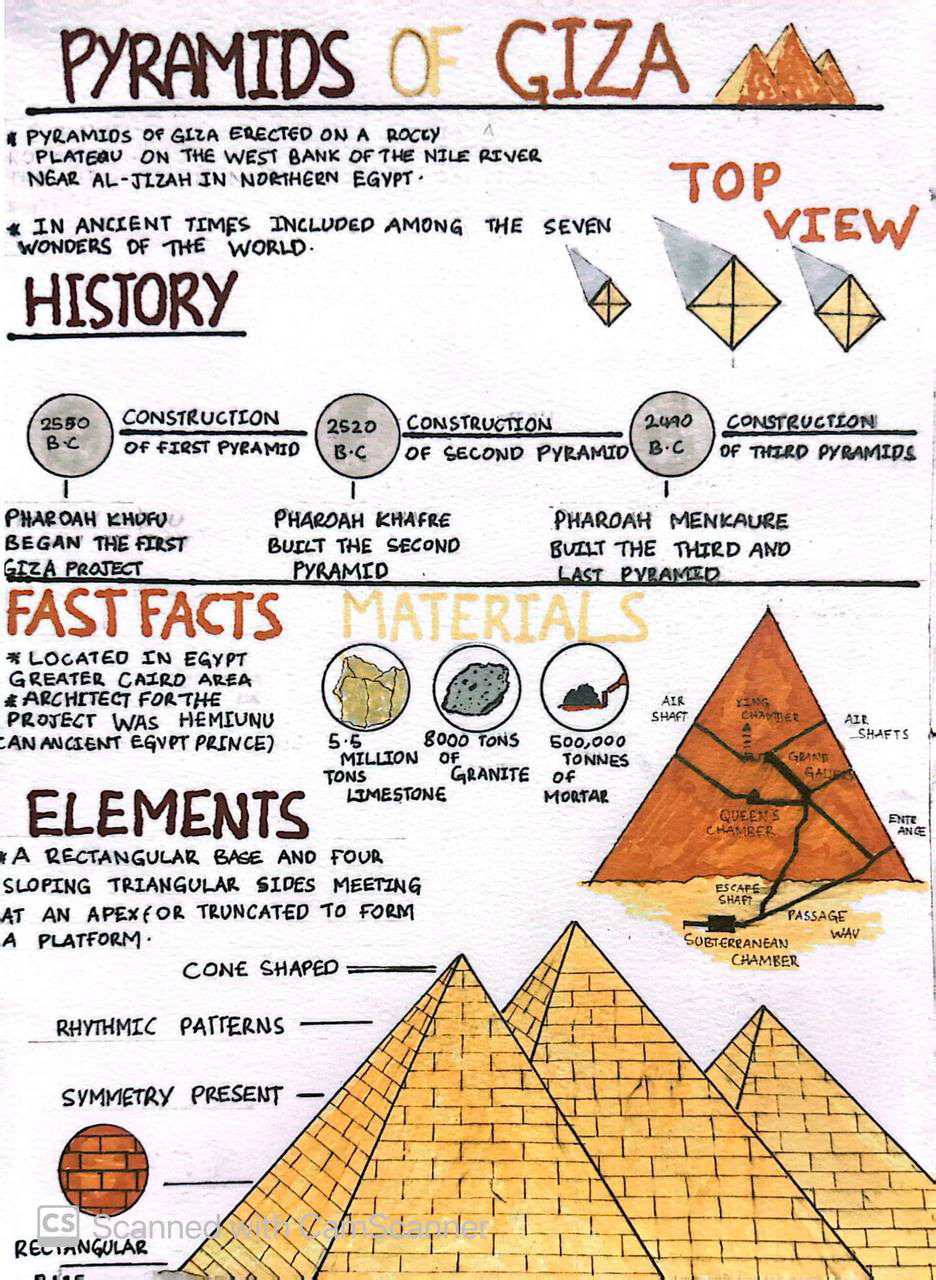 PYRAMIDS OF GIZA
* PYRAMIDS OF GIZA ERECTED ON A ROCKY
PLATEAU ON THE WEST BANK OF THE NILE RIVER
NEAR AL-JIZAH IN NORTHERN EGYPT.
* IN ANCIENT TIMES INCLUDED AMONG THE SEVEN
WONDERS OF THE WORLD.
TOP
VIEW
HISTORY
2550
B.C
CONSTRUCTION
OF FIRST PYRAMID
2520
B.C
CONSTRUCTION
OF SECOND PYRAMID
2490
B.C
CONSTRUCTION
OF THIRD PYRAMIDS
PHAROAH KHUFU
BEGAN THE FIRST
GIZA PROJECT
PHAROAH KHAFRE
BUILT THE SECOND
PYRAMID
PHAROAH MENKAURE
BUILT THE THIRD AND
LAST PYRAMID
FAST FACTS
* LOCATED IN EGYPT
GREATER CAIRO AREA
* ARCHITECT FOR THE
PROJECT WAS HEMIUNU
(AN ANCIENT EGYPT PRINCE)
MATERIALS
5.5
MILLION
TONS
LIMESTONE
8000 TONS
OF
GRANITE
500,000
TONNES
OF
MORTAR
AIR
SHAFT
KING
CHAMBER
AIR
SHAFTS
GRAND
GALLERY
QUEEN'S
CHAMBER
ENTR
ANCE
ESCAPE
SHAFT
PASSAGE
WAY
SUBTERRANEAN
CHAMBER
ELEMENTS
* A RECTANGULAR BASE AND FOUR
SLOPING TRIANGULAR SIDES MEETING
AT AN APEX (OR TRUNCATED TO FORM
A PLATFORM.
CONE SHAPED
RHYTHMIC PATTERNS
SYMMETRY PRESENT
CS Scanned with CamScanner
RECTANGULAR